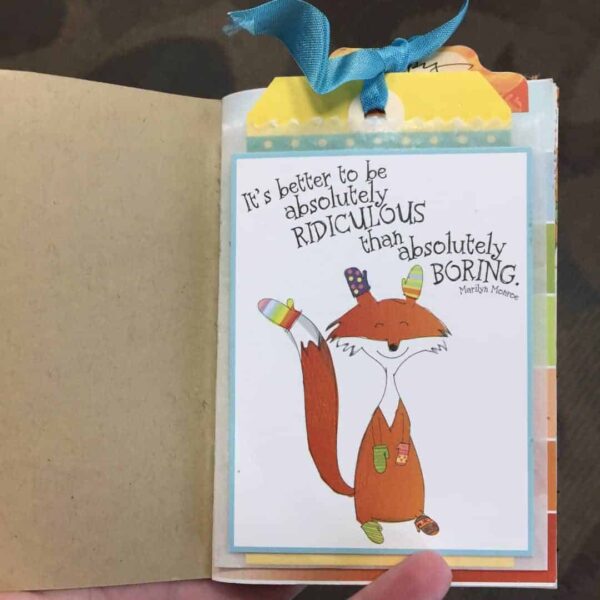 It's better to be
absolutely
RIDICULOUS
than absolutely
BORING.
Marilyn Monroe